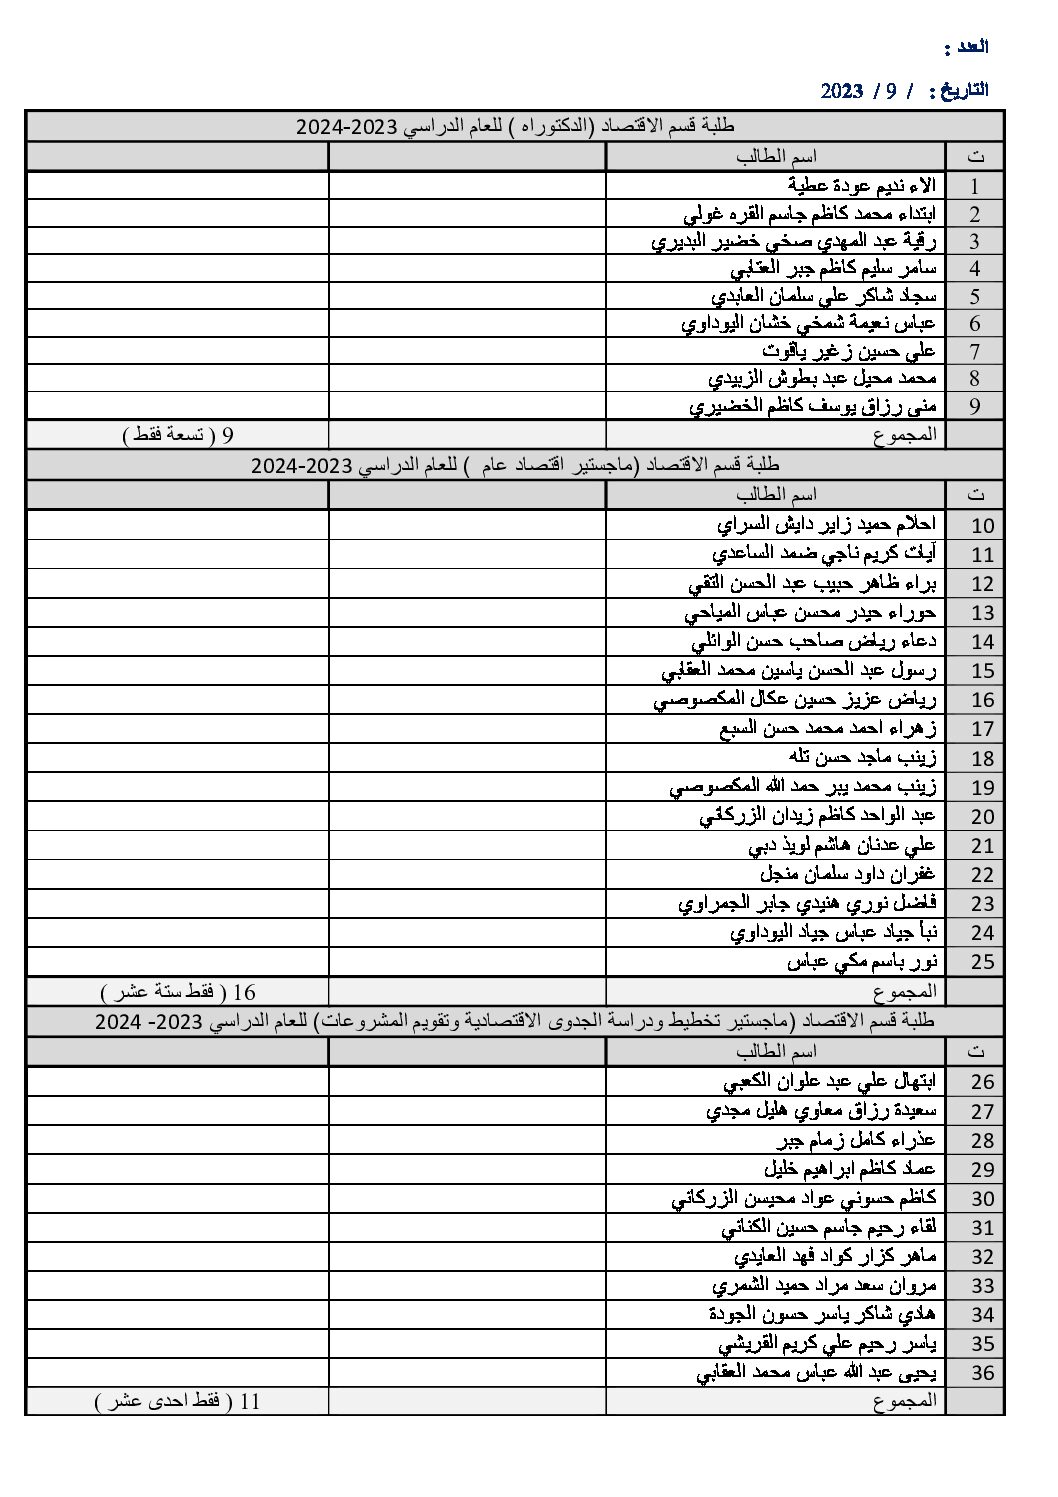 العدد :
التاريخ : / 9 / 2023
طلبة قسم الاقتصاد (الدكتوراه ) للعام الدراسي 2023-2024
ت اسم الطالب
1 الاء نديم عودة عطية
2 ابتداء محمد كاظم جاسم القره غولي
3 رقية عبد المهدي صخي خضير البديري
4 سامر سليم كاظم جبر العتابي
5 سجاد شاكر علي سلمان العابدي
6 عباس نعيمة شمخي خشان اليوداوي
7 علي حسين زغير ياقوت
8 محمد محيل عبد بطوش الزبيدي
9 منى رزاق يوسف كاظم الخضيري
المجموع 9 ( تسعة فقط )
طلبة قسم الاقتصاد (ماجستير اقتصاد عام ) للعام الدراسي 2023-2024
ت اسم الطالب
10 احلام حميد زاير دايش السراي
11 آيات كريم ناجي ضمد الساعدي
12 براء ظاهر حبيب عبد الحسن التقي
13 حوراء حيدر محسن عباس المياحي
14 دعاء رياض صاحب حسن الوائلي
15 رسول عبد الحسن ياسين محمد العقابي
16 رياض عزيز حسين عكال المكصوصي
17 زهراء احمد محمد حسن السبع
18 زينب ماجد حسن تله
19 زينب محمد يبر حمد الله المكصوصي
20 عبد الواحد كاظم زيدان الزركاني
21 علي عدنان هاشم لويذ دبي
22 غفران داود سلمان منجل
23 فاضل نوري هنيدي جابر الجمراوي
24 نبأ جياد عباس جياد اليوداوي
25 نور باسم مكي عباس
المجموع 16 ( فقط ستة عشر )
طلبة قسم الاقتصاد (ماجستير تخطيط ودراسة الجدوى الاقتصادية وتقويم المشروعات) للعام الدراسي 2023- 2024
ت اسم الطالب
26 ابتهال علي عبد علوان الكعبي
27 سعيدة رزاق معاوي هليل مجدي
28 عذراء كامل زمام جبر
29 عماد كاظم ابراهيم خليل
30 كاظم حسوني عواد محيسن الزركاني
31 لقاء رحيم جاسم حسين الكناني
32 ماهر كزار كواد فهد العايدي
33 مروان سعد مراد حميد الشمري
34 هادي شاكر ياسر حسون الجودة
35 ياسر رحيم علي كريم القريشي
36 يحيى عبد الله عباس محمد العقابي
المجموع 11 ( فقط احدى عشر )